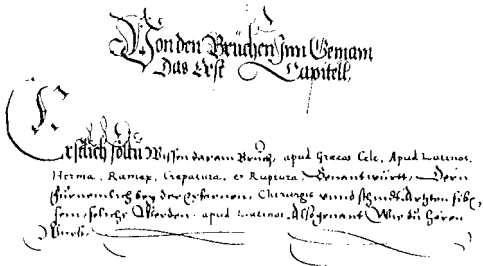 Von den Brüchen Inn Gemain
Das Erst Capitell.
Erstlich soltu Wissen das ain Bruch, apud Graecos Cele, Apud Latinos,
Herma, Ramex, Crepatura, et Ruptura, Genant württ, Deren
fürnemlich bey der externen, Chirurgis vnnd schnidt Artzten siben
sein, soliche werden, apud Latinos, Also genant Wie du hören
Würst.